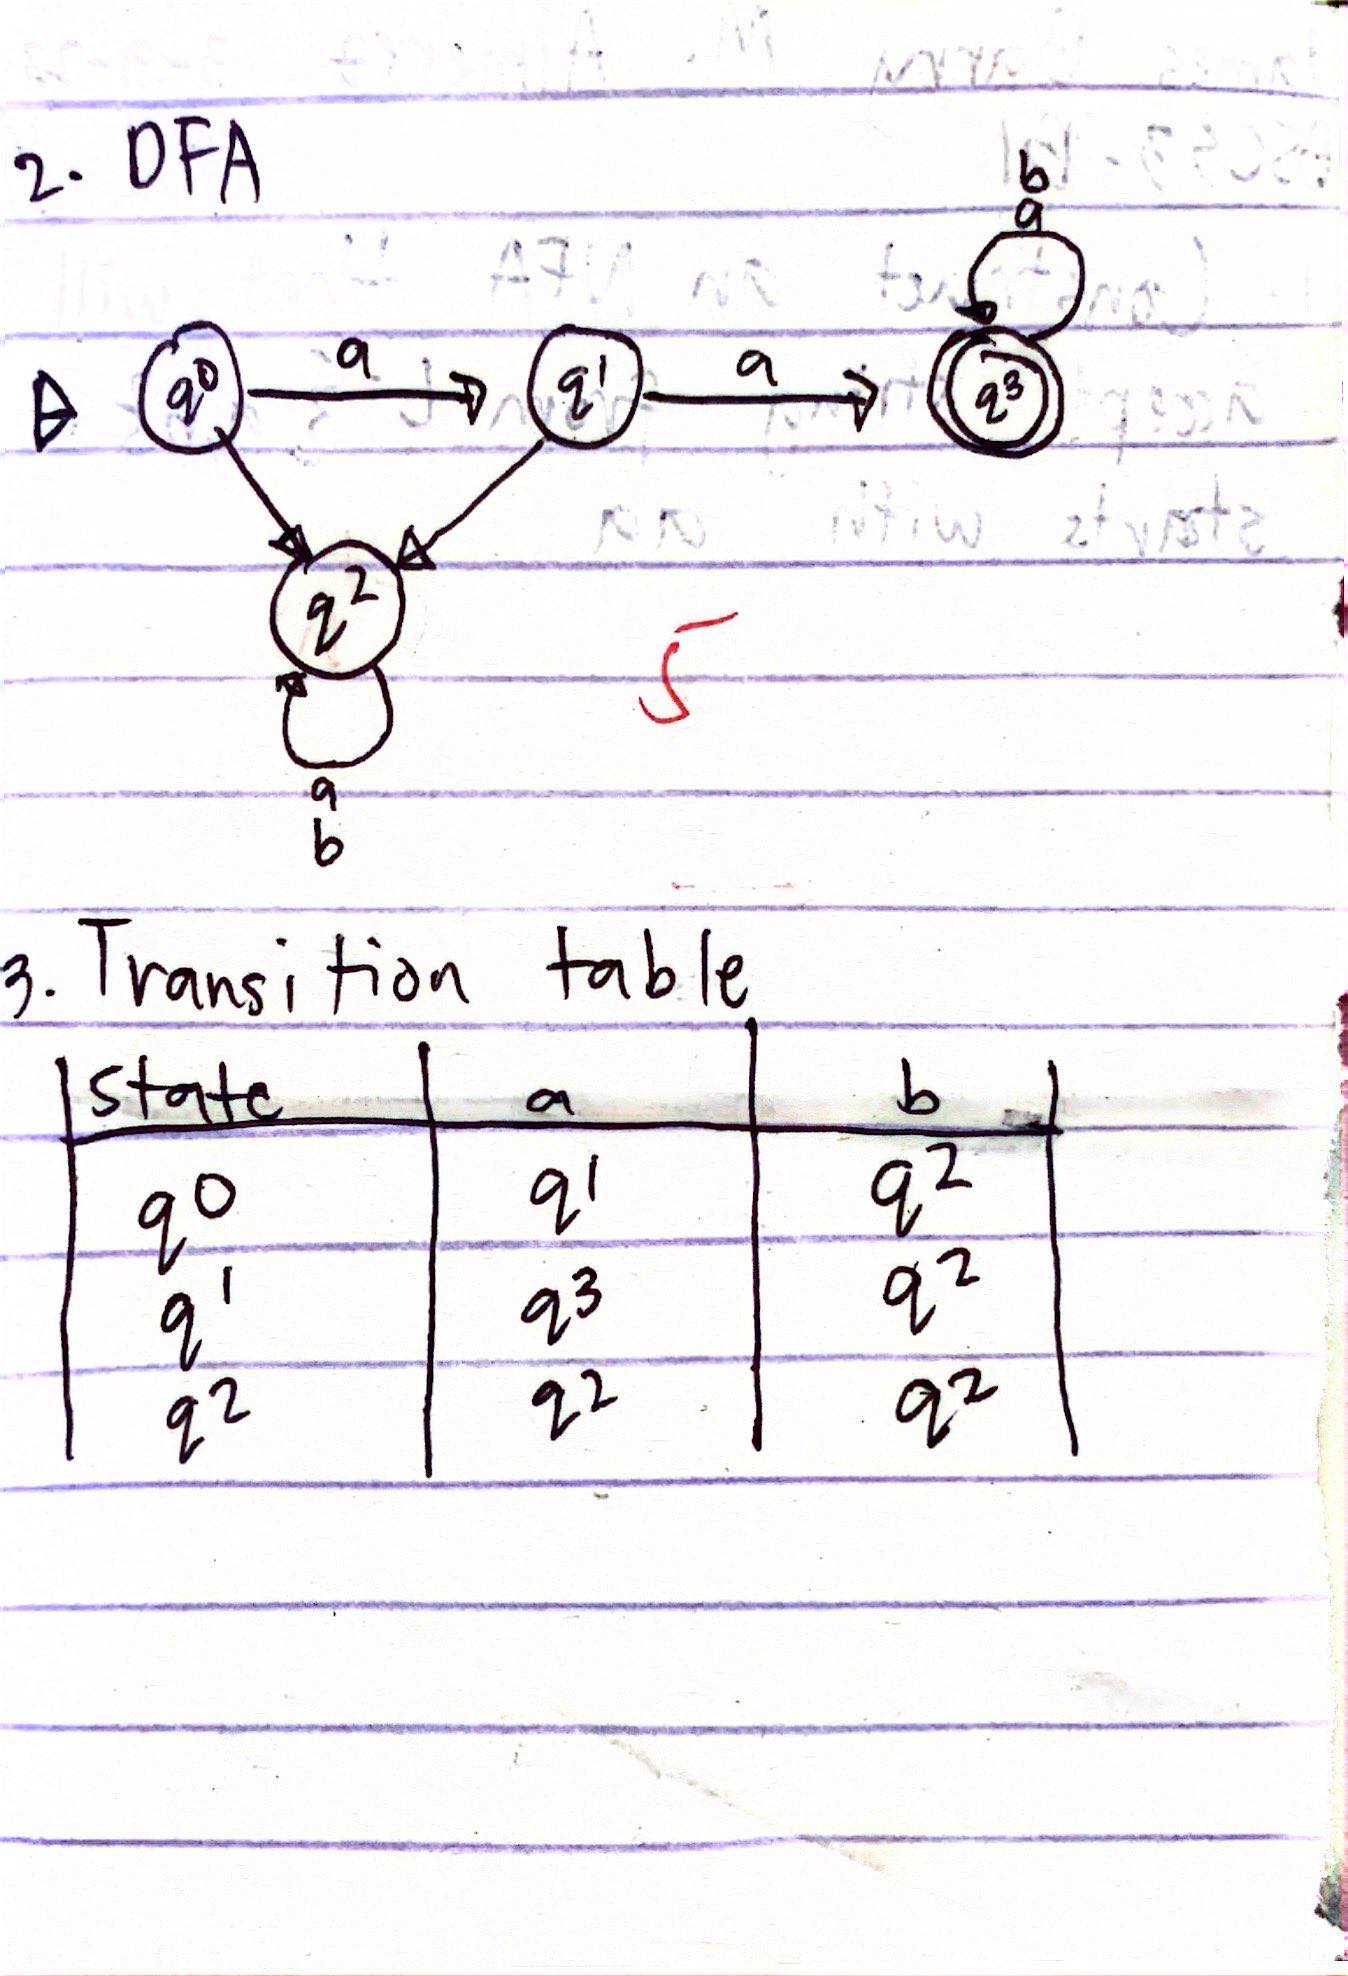 2. DFA
b
a
q0 a q1 a q3
q2
5
a
b
3. Transition table
state a b
q0 q1 q2
q1 q3 q2
q2 q2 q2